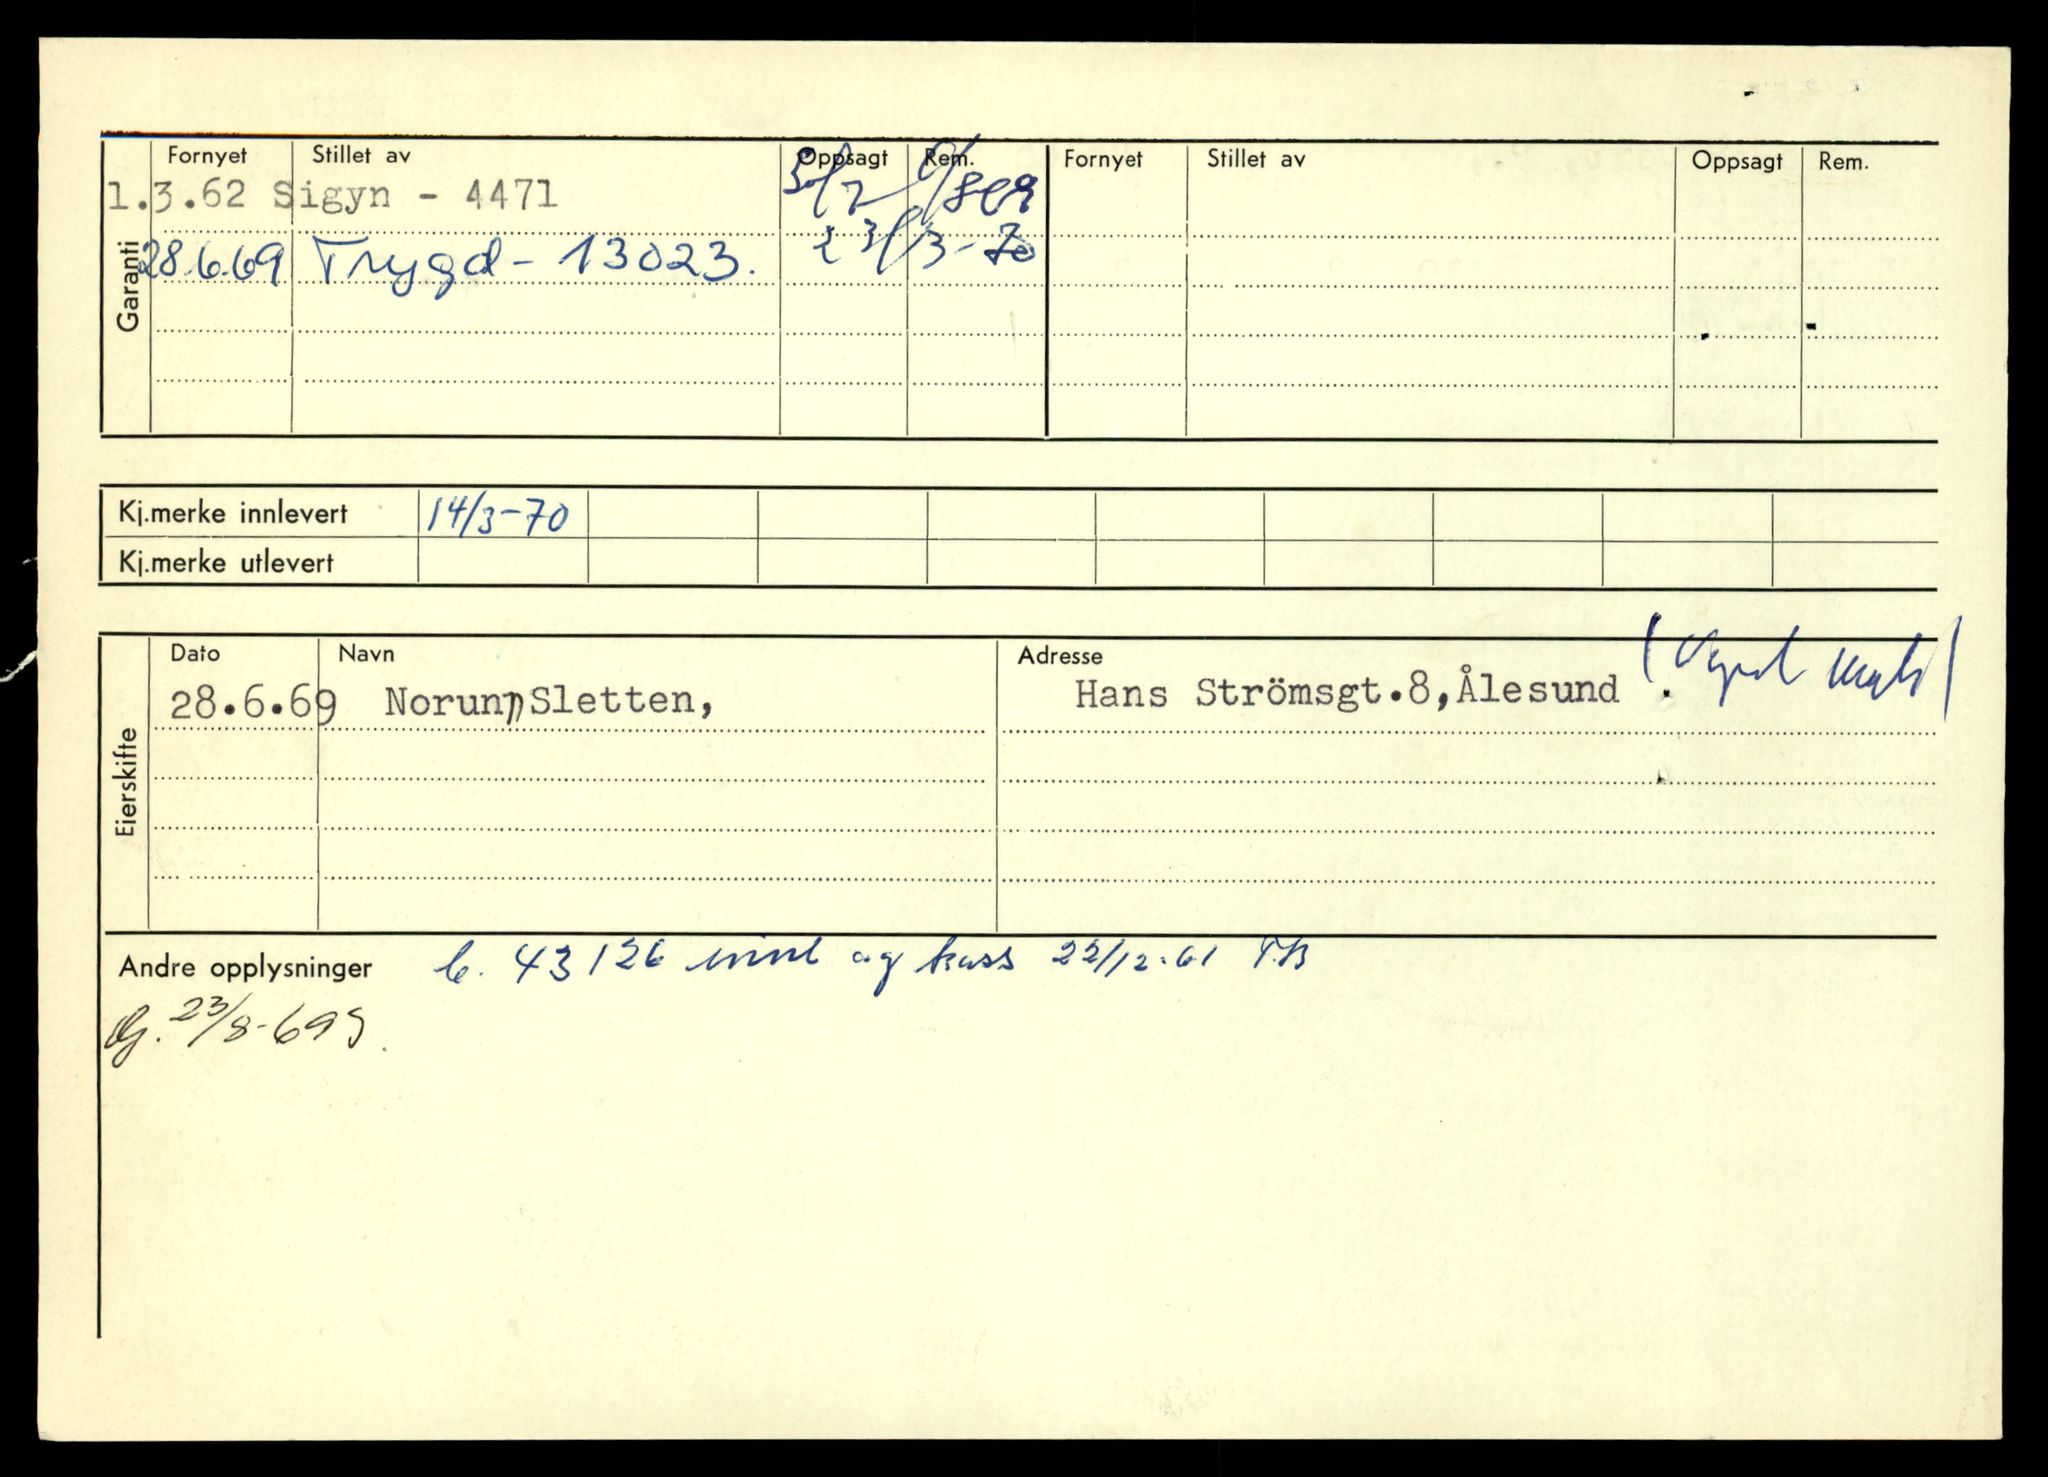 Fornyet Stillet av Oppsagt Rem. Fornyet Stillet av Oppsagt Rem.
1.3.62 Sigyn - 4471
28.6.69 Trygd - 13023. 23/3-70
Garanti
Kj.merke innlevert 14/3-70
Kj.merke utlevert
Dato Navn Adresse
28.6.69 Norunn Sletten, Hans Strömsgt.8,Ålesund
Eierskifte
Andre opplysninger b. 43126 innl og kass 22/12.61 T.B
23/8-69